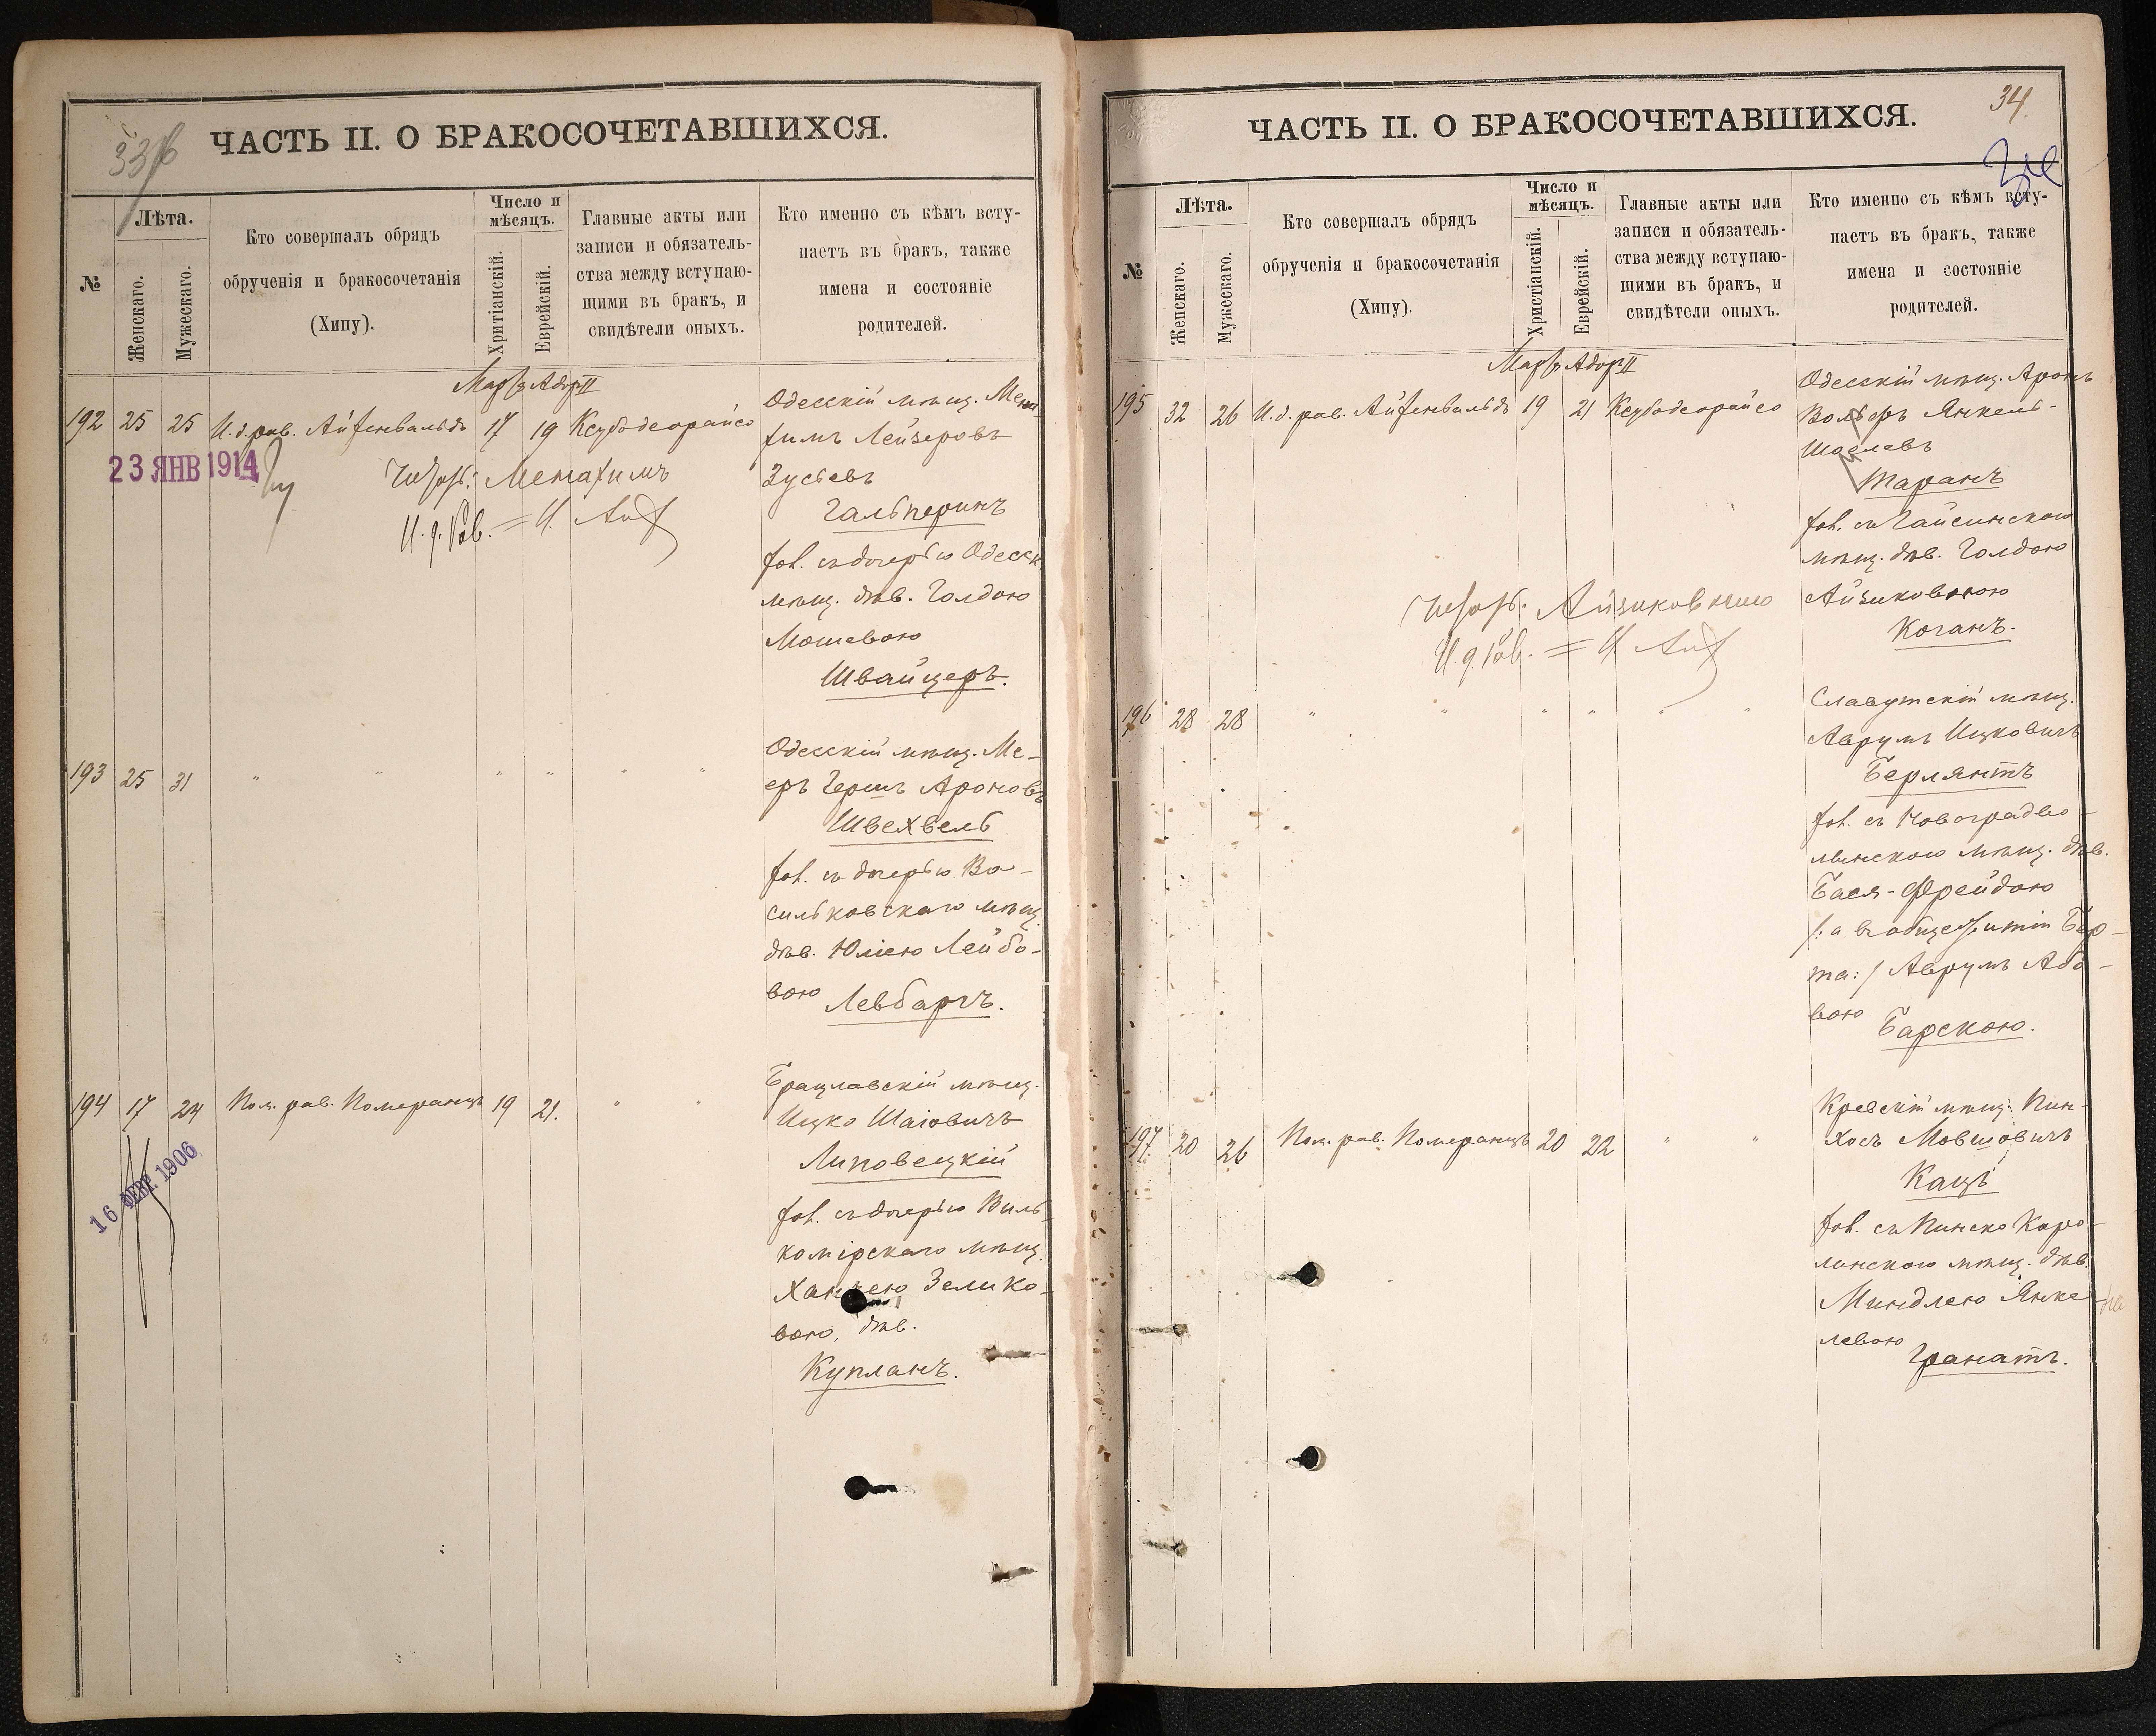 ЧАСТЬ II. О БРАКОСОЧЕТАВШИХСЯ.
№
Лѣта.
Женскаго.
Мужескаго.
Кто совершалъ обрядъ
обрученія и бракосочетанія
(Хипу).
Число и
мѣсяцъ.
Хритіанскій.
Еврейскій.
Главные акты или
записи и обязатель-
ства между вступаю-
щими въ бракъ, и
свидѣтели оныхъ.
Кто именно съ кѣмъ всту-
паетъ въ бракъ, также
имена и состояніе
родителей.
Мартъ Адоръ II
192 25 25 И.д.рав. Айзенвальдъ 17 19 Ксубодеорайсо
Одесскій мѣщ. Мена
химъ Лейзеровъ
Зусьевъ
Гальперинъ
хол. съ дочерью Одесск.
мѣщ. дѣв. Голдою
Мошевою
Швайцеръ.
23 ЯНВ 1914
Менахимъ
И.д.Рав.
193 25 31 " " " " " "
Одесскій мѣщ. Ме-
еръ Гершъ Ароновъ
Швехвель
хол. съ дочерью Ва-
сильковскаго мѣщ.
дѣв. Юліею Лейбо-
вою Левбаргъ.
194 17 24 Пом. рав. Померанцъ 19 21. " "
Брацлавскій мѣщ.
Ицко Шаіовичъ
Липовецкій
хол. съ дочерью Виль-
комірскаго мѣщ.
Ханею Зелико-
вою, дѣв.
Купланъ.
16 ФЕВР. 1906
34.
ЧАСТЬ II. О БРАКОСОЧЕТАВШИХСЯ.
№
Лѣта.
Женскаго.
Мужескаго.
Кто совершалъ обрядъ
обрученія и бракосочетанія
(Хипу).
Число и
мѣсяцъ.
Христіанскій.
Еврейскій.
Главные акты или
записи и обязатель-
ства между вступаю-
щими въ бракъ, и
свидѣтели оныхъ.
Кто именно съ кѣмъ всту-
паетъ въ бракъ, также
имена и состояніе
родителей.
Мартъ Адоръ II
195 32 26 И.д.рав. Айзенвальдъ 19 21 Ксубодеорайсо
Одесскій мѣщ. Аронъ
Вольфъ Янкель-
Таранъ
хол. съ Гайсинскою
мѣщ. дѣв. Голдою
Айзиковною
Коганъ.
Айзиковною
И.д.Рав.
196 28 28 " " " " " "
Славутскій мѣщ.
Аврумъ Ицковичъ
Берлянтъ
хол. съ Новоградво-
лынскою мѣщ. дѣв.
Бася-Фрейдою
/:а въ общежитіи Бер-
та:/ Аврумъ Або-
вою Барскою.
197 20 26 Пом. рав. Померанцъ 20 22 " "
Кревскій мѣщ. Пин-
хосъ Мовшовичъ
Кацъ
хол. съ Пинско Каро-
линскою мѣщ. дѣв.
Миндлею Янке-
левою
Гранатъ.